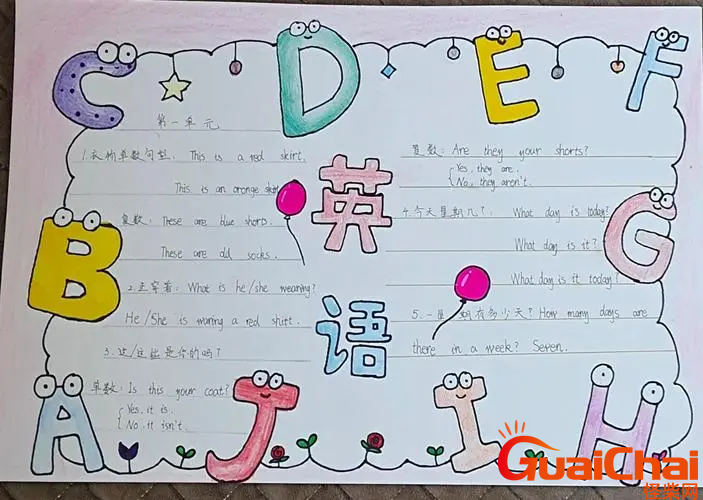 C D E F
第一单元
1.衣物单数句型: This is a red skirt.
This is an orange skirt
复数: These are blue shorts.
These are old socks.
2.正穿着: What is he/she wearing?
He/She is waring a red shitt.
3.这/这些是你的吗?
单数: Is this your coat?
Yes, it is.
No, it isn't.
英
语
复数: Are they your shorts?
Yes, they are.
No, they aren't.
4.今天星期几?: What day is today?
What day is it?
What day is it today?
5.一星期有多少天? How many days are
there in a week? Seven.
B G
A J I H
GuaiChai
怪柴网